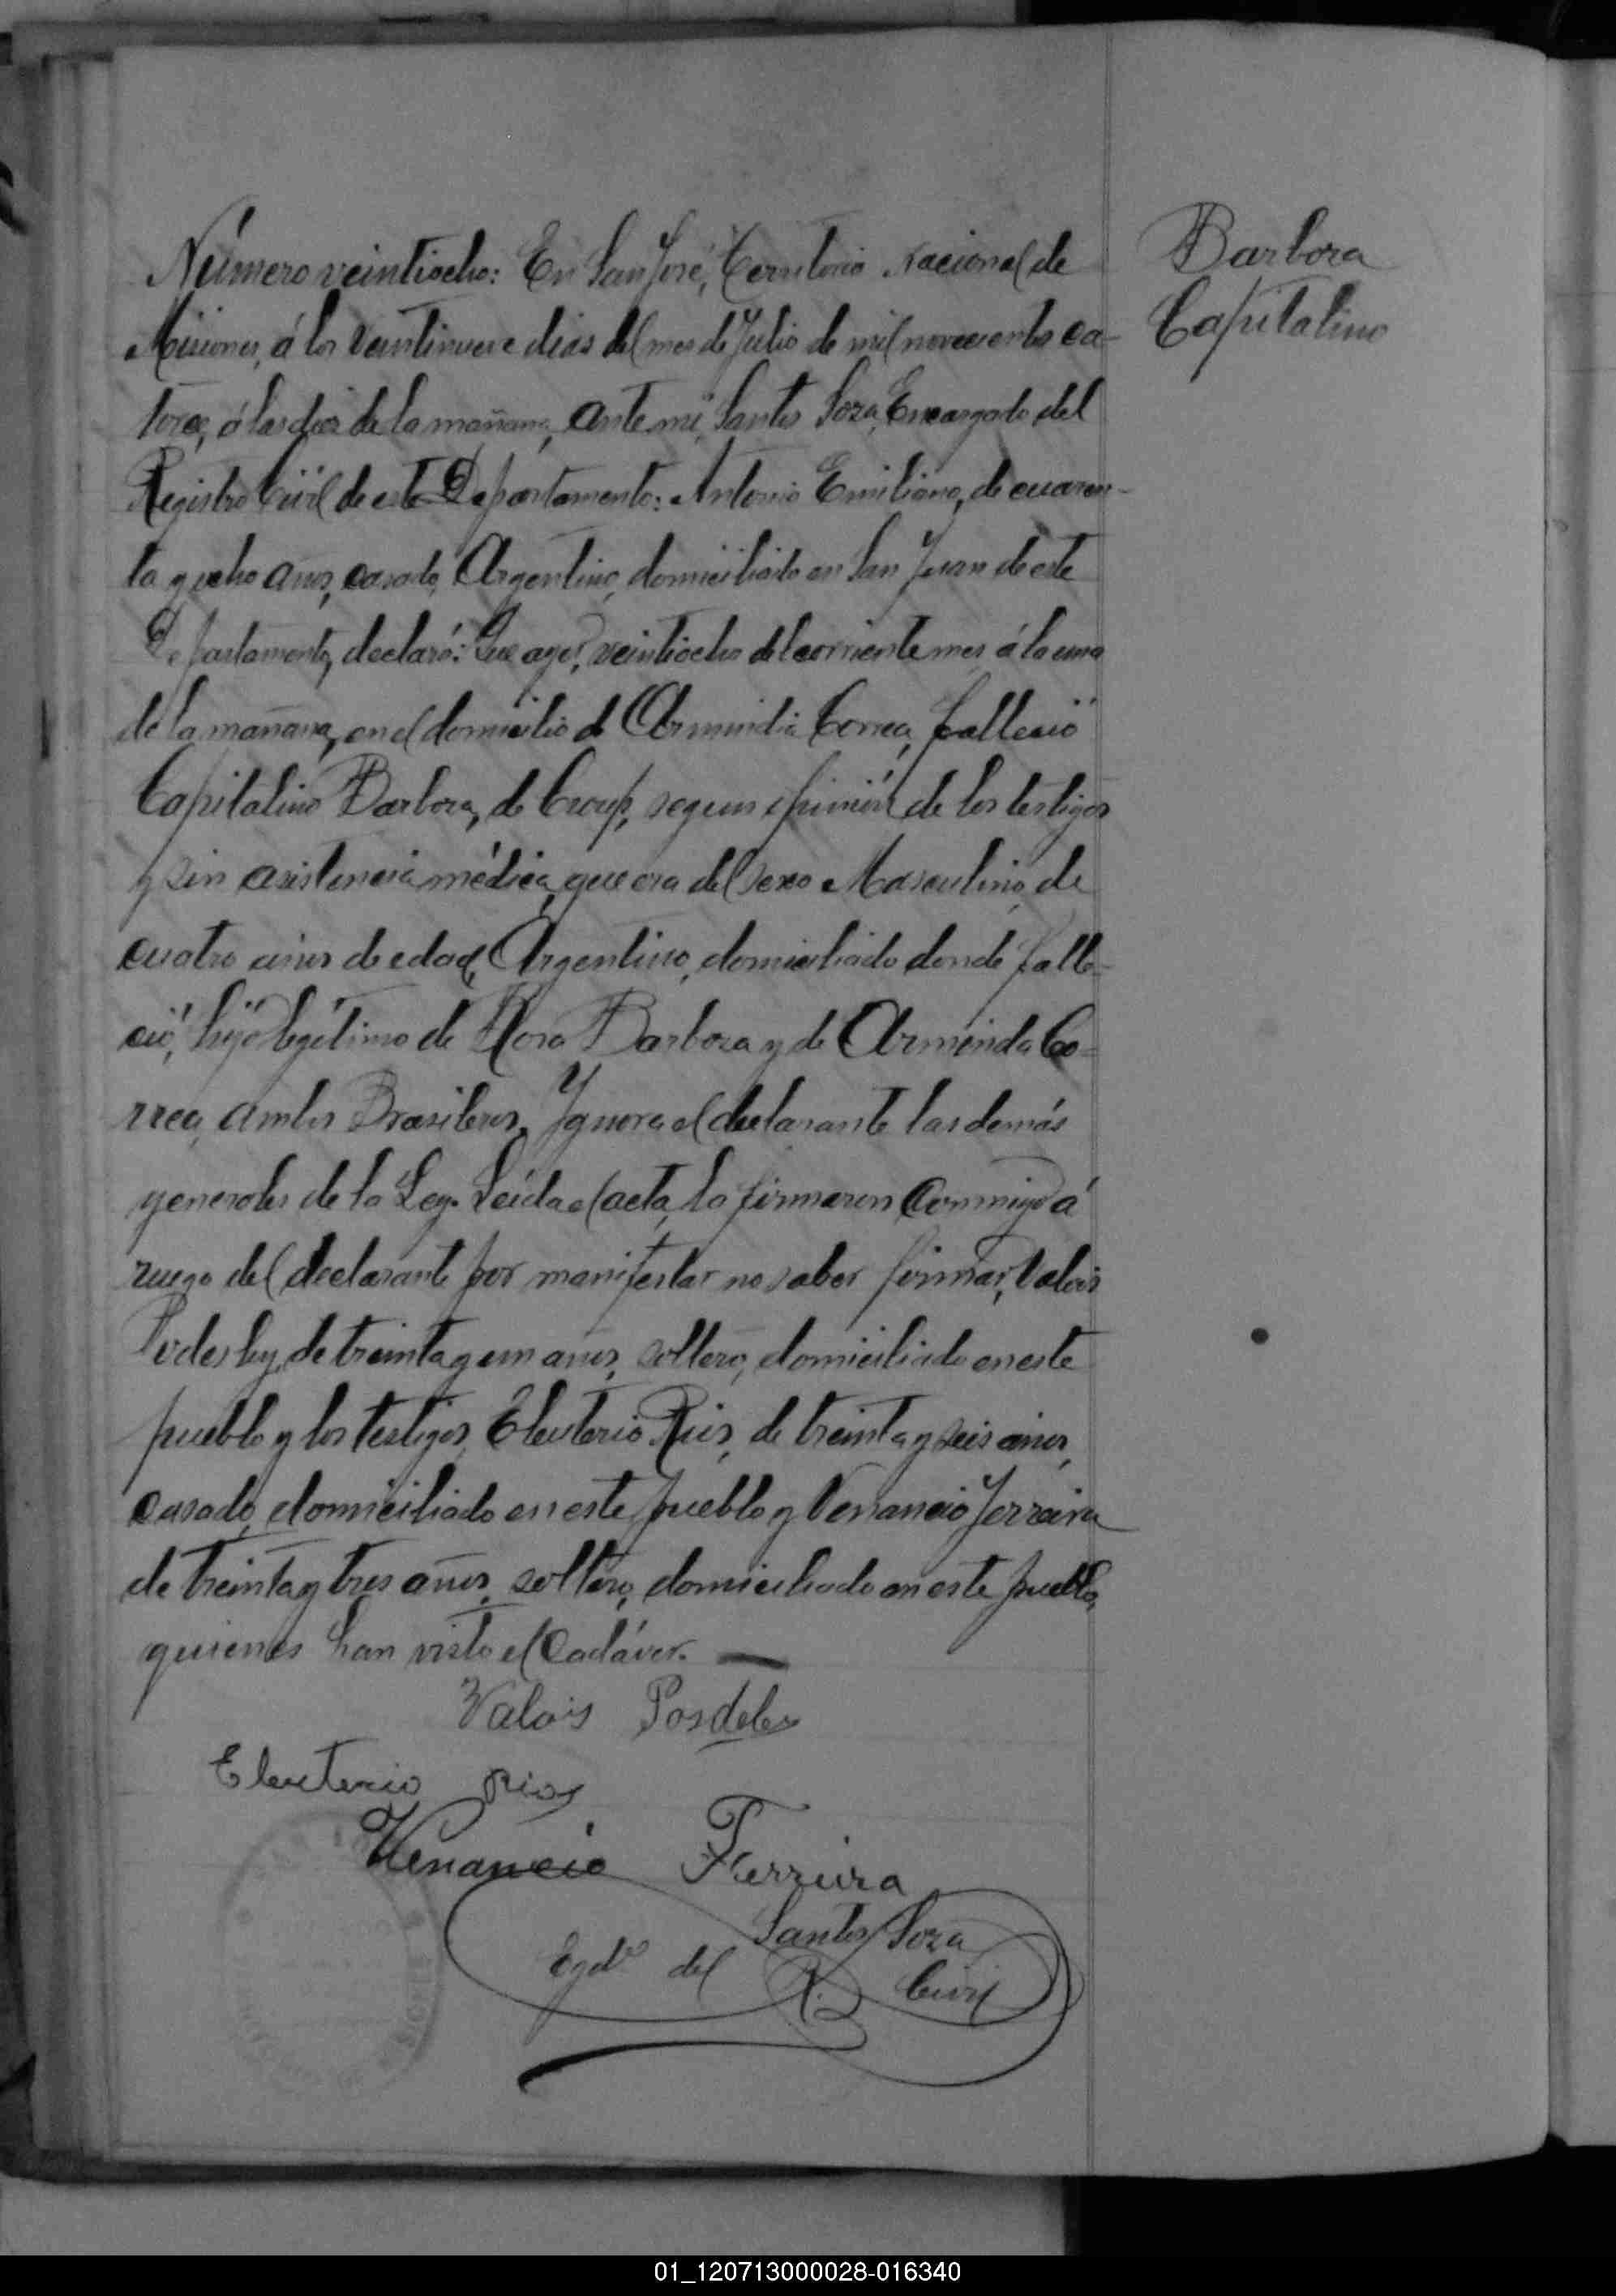 Barboza
Capitalino
Número veintiocho: En San José, Territorio Nacional de
Misiones, á los veintinueve dias del mes de Julio de mil novecientos ca-
torce, á las diez de la mañana, ante mi, Santos Soza, Encargado del
Registro Civil de este Departamento: Antonio Emiliano, de cuaren-
ta y ocho años, casado, Argentino, domiciliado en San Juan de este
Departamento, declaró: Que ayer, veintiocho del corriente mes á la una
de la mañana, en el domicilio de Correa, falleció
Capitalino Barboza, de Croup, segun opinión de los testigos
y sin asistencia médica, que era del sexo Masculino, de
cuatro años de edad, Argentino, domiciliado donde falle-
ció, hijo legítimo de Barboza y de Armenda Co=
rrea, ambos Brasileros. Ygnora el declarante las demás
generales de la Ley. Leída el acta, la firmaron conmigo á
ruego del declarante por manifestar no saber firmar, Valois
de treinta y un años, soltero, domiciliado en este
pueblo y los testigos, Eleuterio Rios, de treinta y seis años,
casado, domiciliado en este pueblo y Venancio Ferreira
de treinta y tres años, soltero, domiciliado en este pueblo,
quienes han visto el cadáver. —
Valois
Eleuterio Rios
Venancio Ferreira
Santos Soza
Egdo del R. Civil
01_120713000028-016340